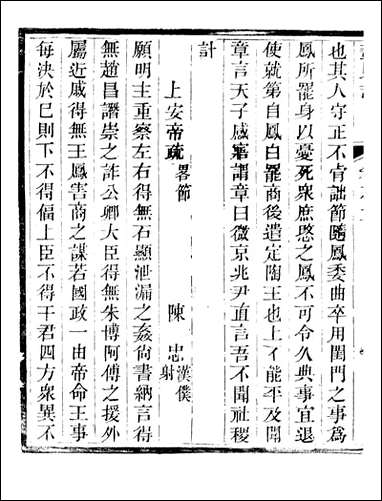 也其人守正不肯詘節隨鳳委曲卒用閨門之事爲
鳳所罷身以憂死衆庶愍之鳳不可令久典事宜退
使就第自鳳白罷商後遣定陶王也上不能平及聞
章言天子感寤謂章曰微京兆尹直言吾不聞社稷
計
上安帝疏畧節 陳忠漢僕射
願明主重察左右得無石顯泄漏之姦尚書納言得
無趙昌譖崇之詐公卿大臣得無朱博阿傅之援外
屬近戚得無王鳳害商之謀若國政一由帝命王事
每決於巳則下不得偪上臣不得干君四方衆異不